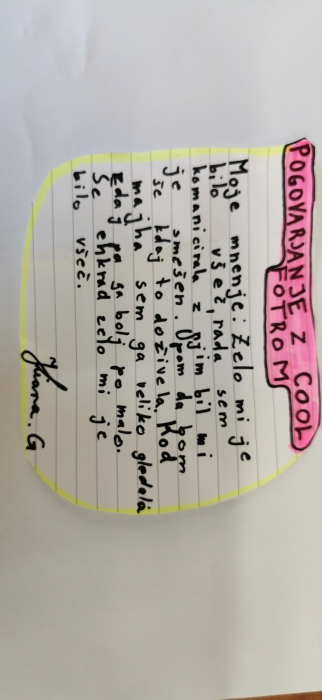 POGOVARJANJE Z COOL
FOTROM
Moje mnenje: Zelo mi je
bilo všeč, rada sem
komanicirala z njim bil mi
je smešen. Upam da bom
še kdaj to doživela. Kod
majhna sem ga veliko gledela
zdaj pa ga bolj po malo.
Še enkrad zelo mi je
bilo všeč.